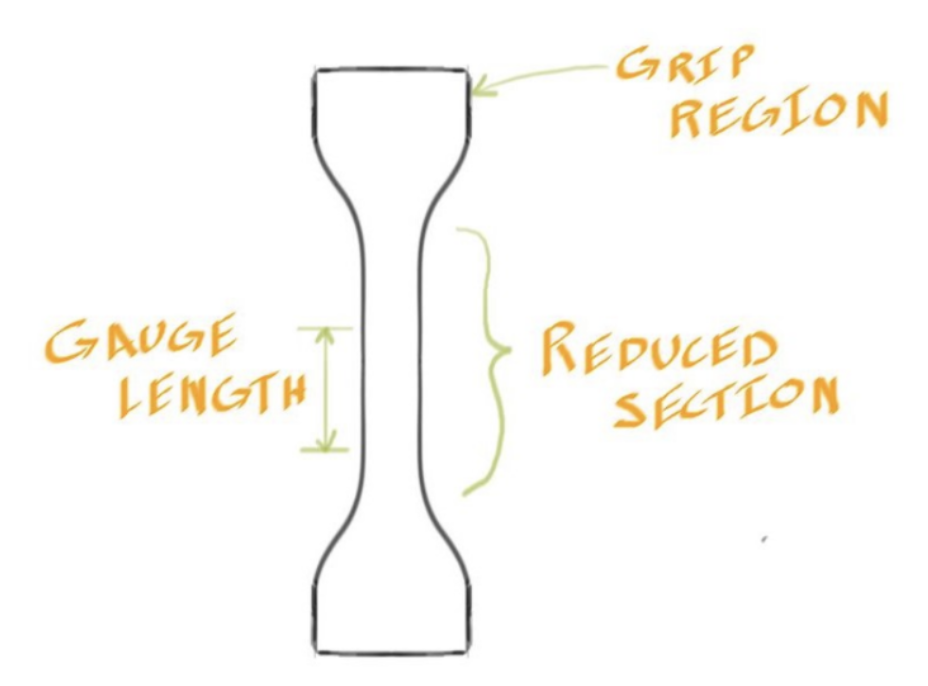 GRIP
REGION
GAUGE
LENGTH
REDUCED
SECTION